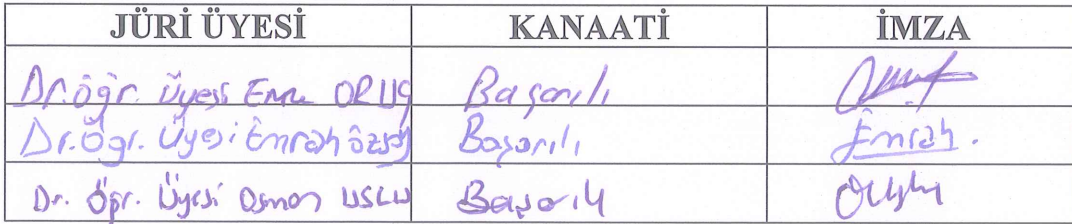 JÜRİ ÜYESİ KANAATİ İMZA
Dr. Öğr. Üyesi Emre ORUÇ Başarılı
Dr. Öğr. Üyesi Emrah Başarılı Emrah.
Dr. Öğr. Üyesi Osman USLU Başarılı